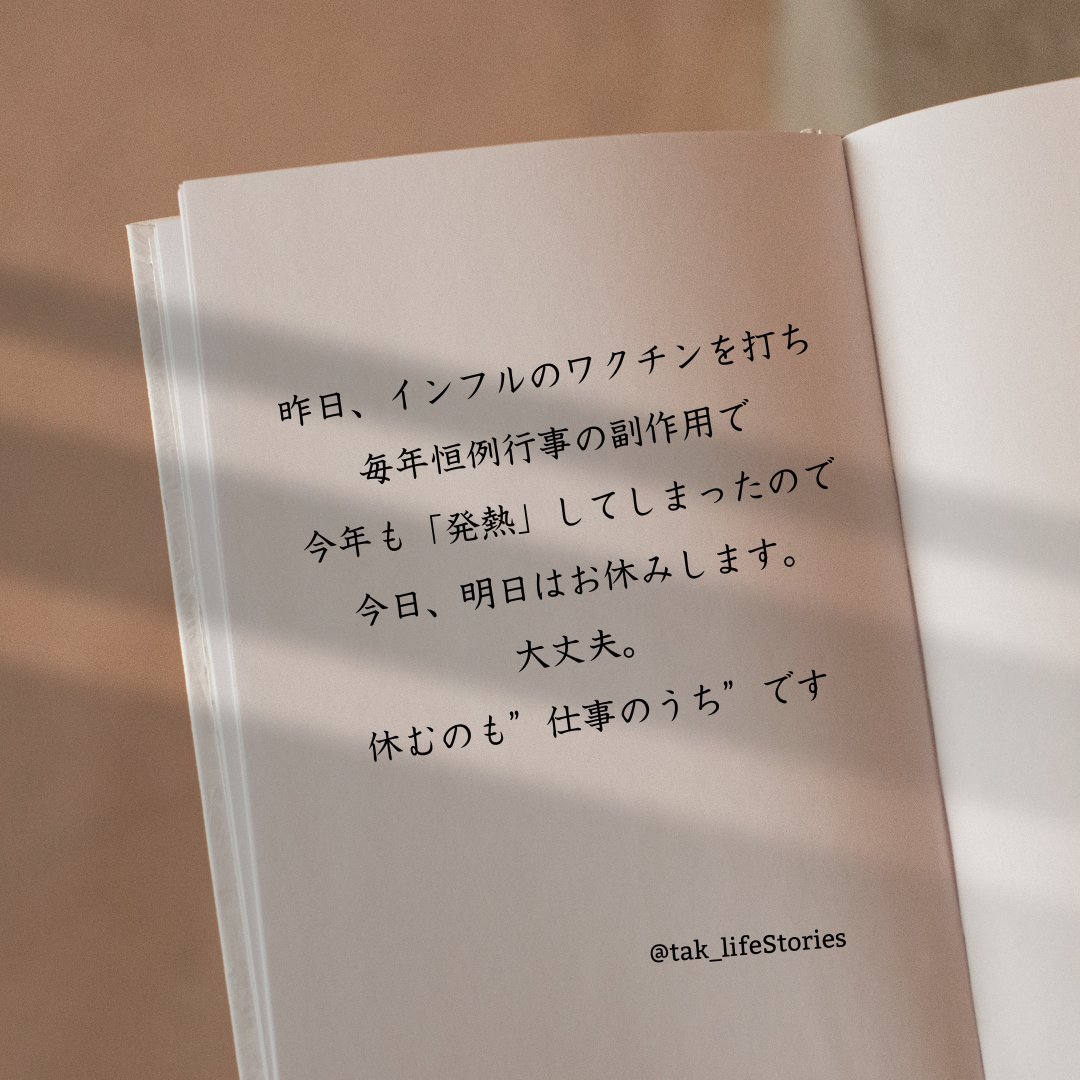 昨日、インフルのワクチンを打ち
毎年恒例行事の副作用で
今年も「発熱」してしまったので
今日、明日はお休みします。
大丈夫。
休むのも”仕事のうち”です
@tak_lifeStories